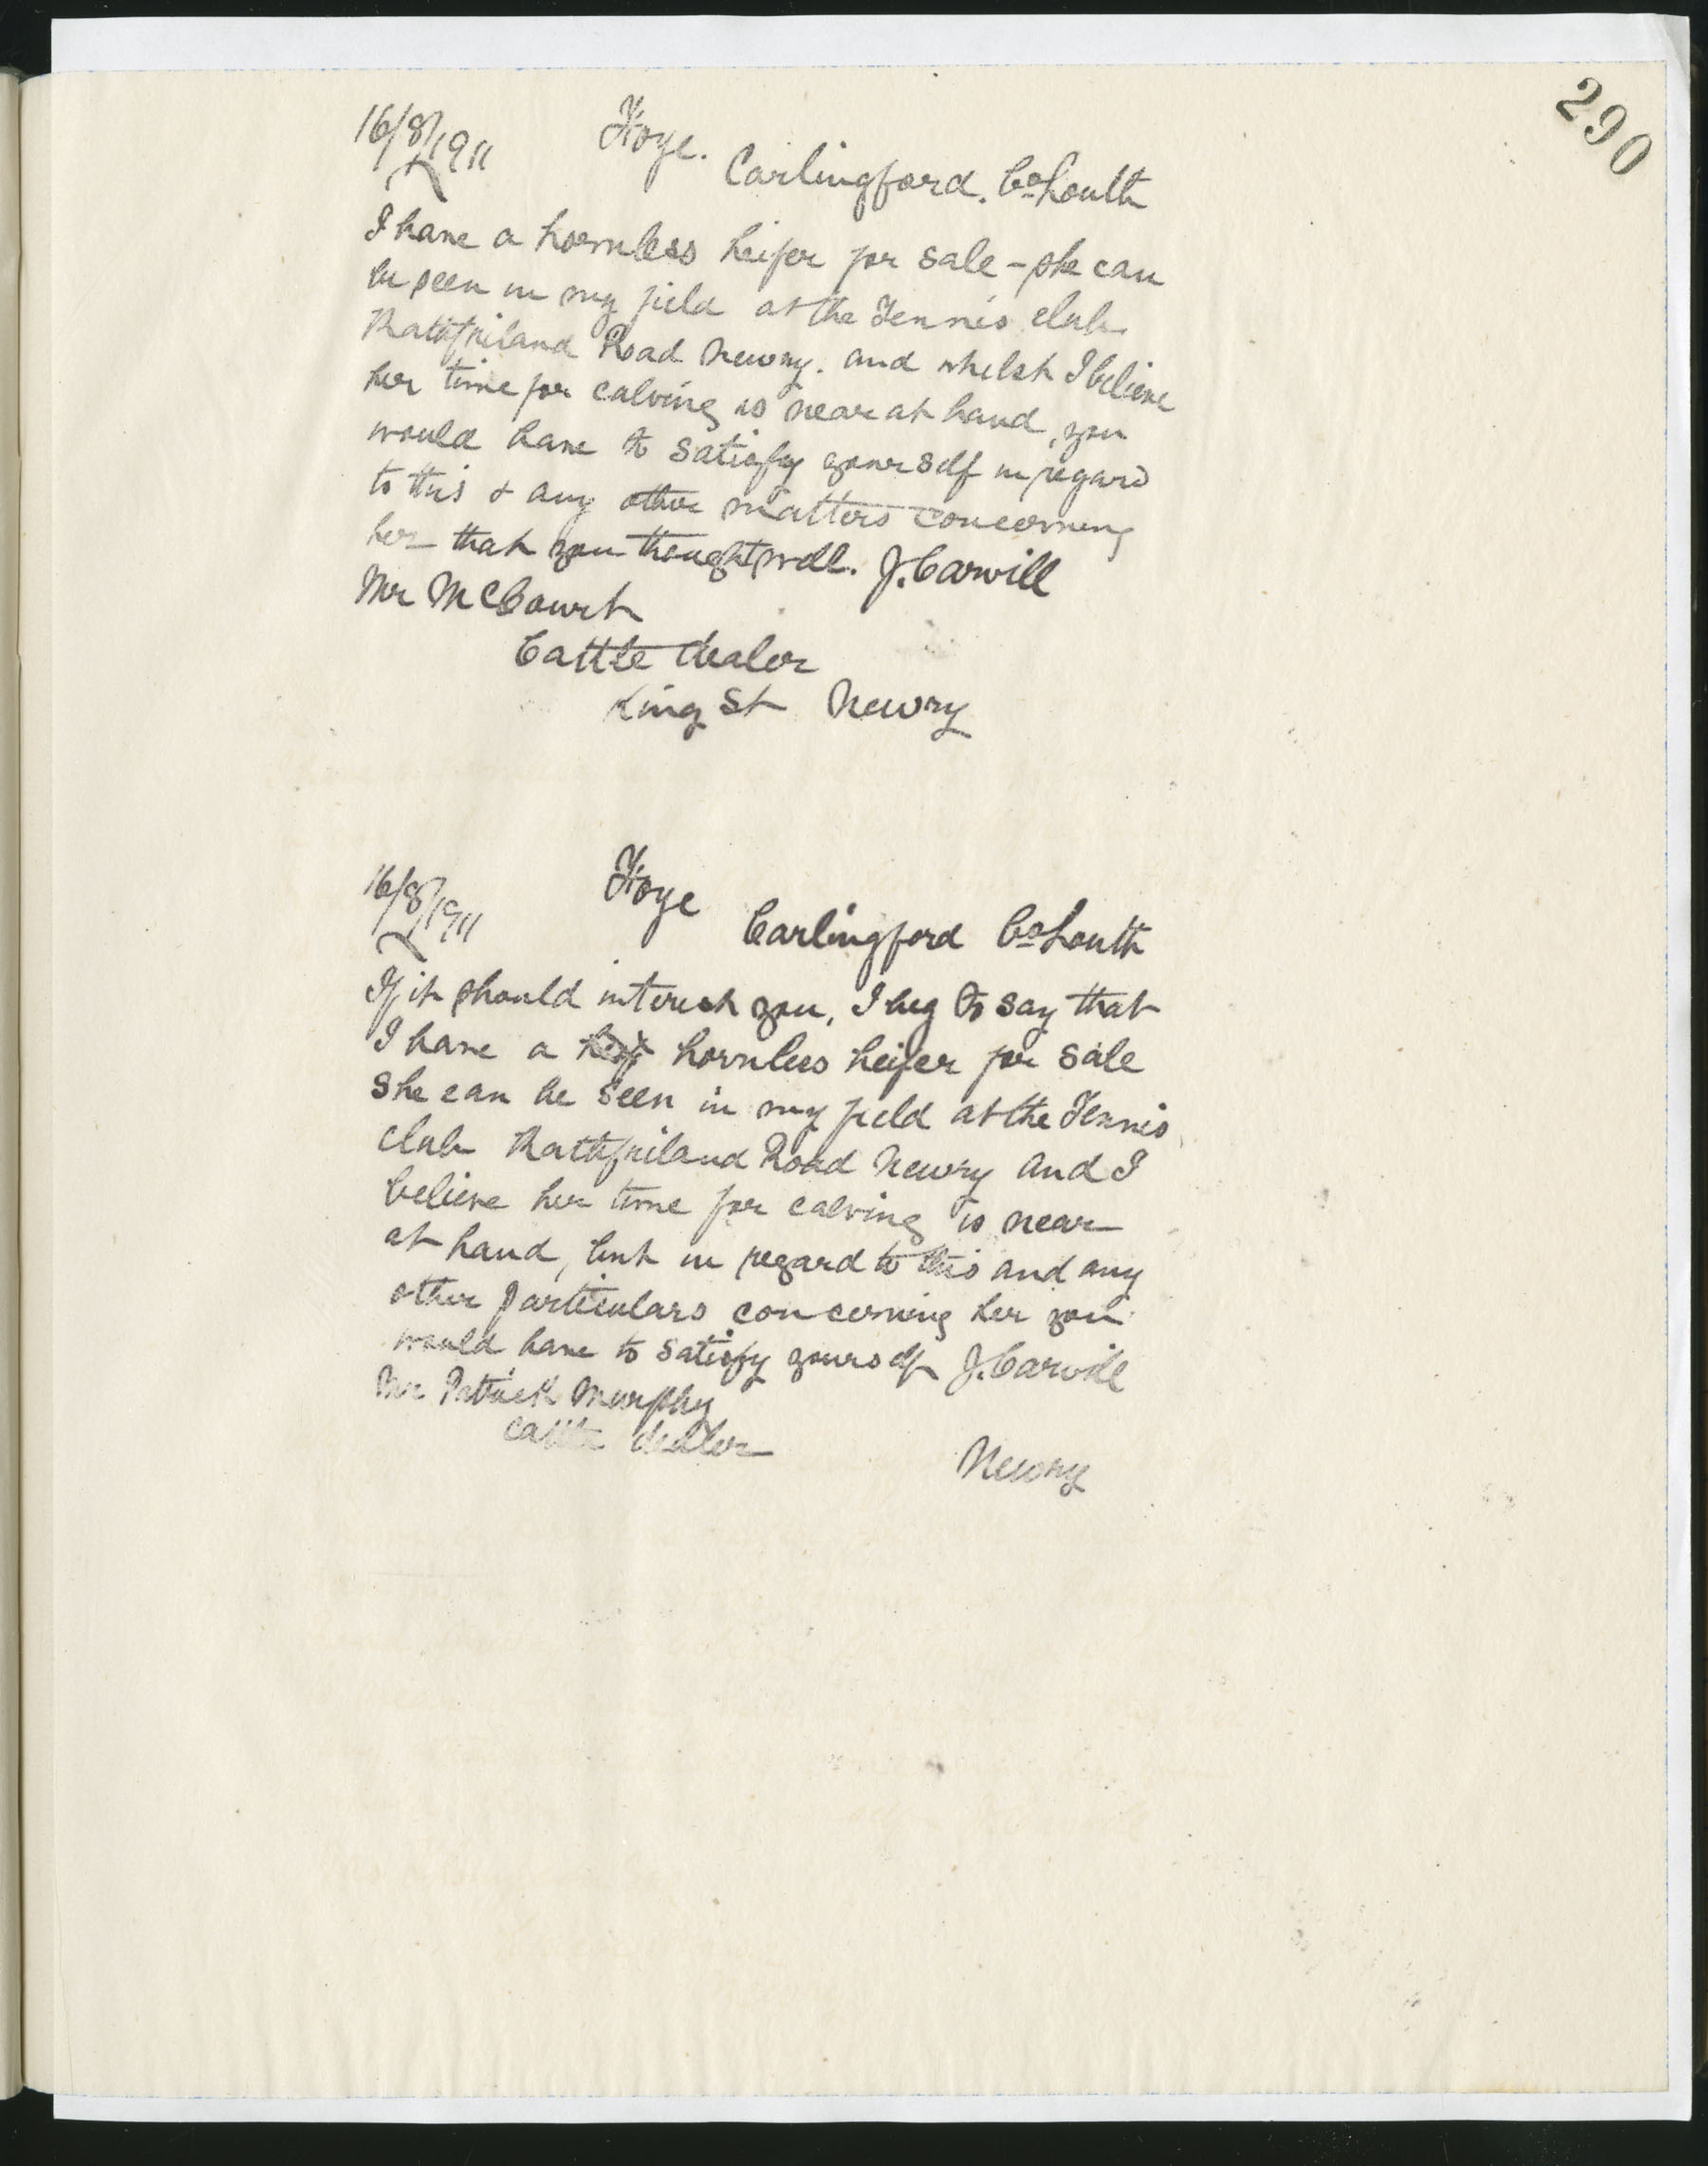 290
16/8/1911 Foye.
Carlingford. Co Louth
I have a hornless heifer for sale - she can
be seen in my field at the Tennis club
Rathfriland Road Newry. and whilst I believe
her time for calving is near at hand, you
would have to satisfy yourself in regard
to this & any other matters concerning
her that you thought well. J. Carvill
Mr McCourt
Cattle dealer
King St Newry
16/8/1911 Foye
Carlingford Co Louth
If it should interest you, I beg to say that
I have a hornless heifer for sale
She can be seen in my field at the Tennis
club Rathfriland Road Newry and I
believe her time for calving is near
at hand, but in regard to this and any
other particulars concerning her you
would have to satisfy yourself J. Carvill
Mr Patrick Murphy
Cattle dealer
Newry